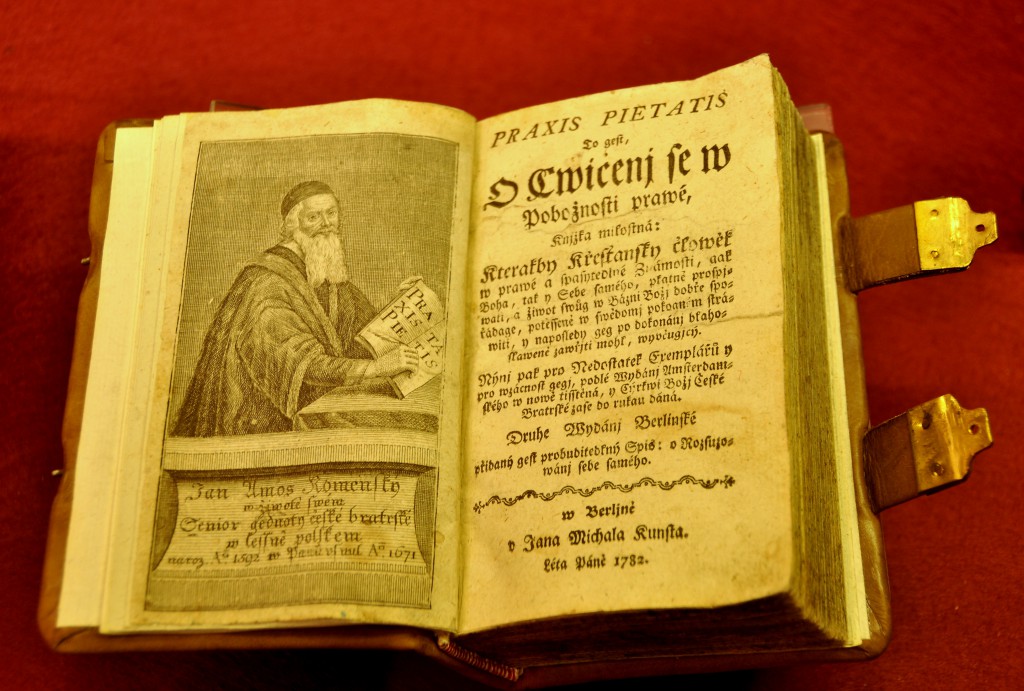 PRA
XIS TA
PIE TIS
Jan Amos Komensky
w žiwotě swém
Senior gednoty české bratrské
w lessně polskem
naroz. Aº. 1592 w Panu usnul Aº. 1671
PRAXIS PIETATIS
To gest,
O Cwičenj se w
Pobožnosti prawé,
Knjžka milostná:
Kterakby Křestiansky člowěk
w prawé a spasytedlné Známosti, gak
Boha, tak y Sebe samého, platně prospj-
wati, a žiwot swůg w Bázni Božj dobře spo-
řádage, potěsseně w swědomj pokogném strá-
witi, y naposledy geg po dokonánj blaho-
slaweně zawřjti mohl, wyučugjcý.
Nýnj pak pro Nedostatek Exemplářů y
pro wzácnost gegj, podlé Wydánj Amsterdam-
ského w nowě tisstěná, y Cýrkwi Božj České
Bratrské zase do rukau dána.
Druhe Wydánj Berlinské
přidaný gest probuditedlný Spis: o Rozsuzo-
wánj sebe samého.
w Berljně
v Jana Michala Kunsta.
Léta Páně 1782.